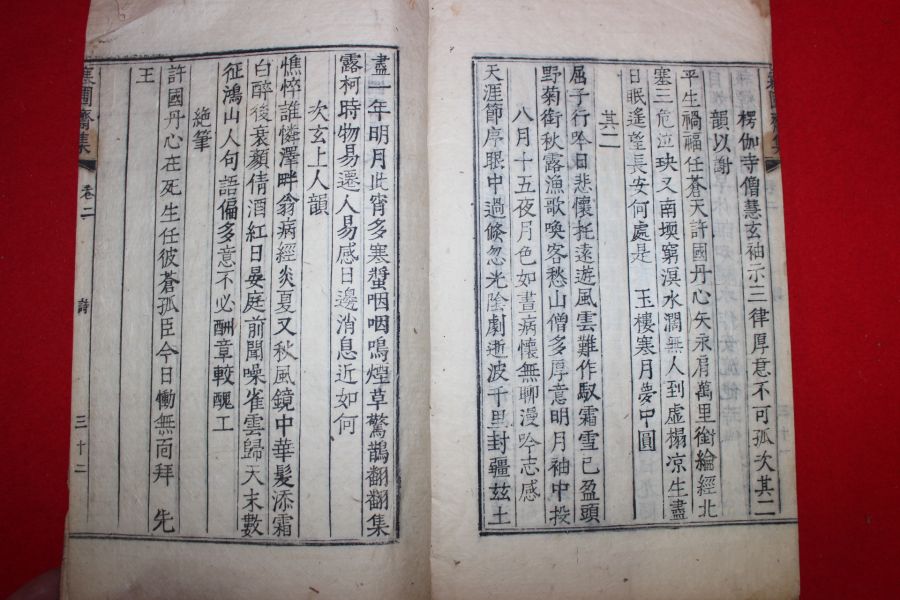 楞伽寺僧慧玄袖示三律厚意不可孤次其二
韻以謝
平生禍福任蒼天許國丹心矢永肩萬里銜綸經北
塞三危泣玦又南壖窮溟水濶無人到虛榻凉生盡
日眠遙望長安何處是 玉樓寒月夢中圓
其二
屈子行吟日悲懷托遠遊風雲難作馭霜雪已盈頭
野菊銜秋露漁歌喚客愁山僧多厚意明月袖中投
八月十五夜月色如晝病懷無聊漫吟志感
天涯節序眼中過倏忽光陰劇逝波千里封疆玆土
盡一年明月此宵多寒螿咽咽鳴煙草驚鵲翻翻集
露柯時物易遷人易感日邊消息近如何
次玄上人韻
憔悴誰憐澤畔翁病經炎夏又秋風鏡中華髮添霜
白醉後衰顏倩酒紅日晏庭前聞噪雀雲歸天末數
征鴻山人句語偏多意不必酬章較醜工
絶筆
許國丹心在死生任彼蒼孤臣今日慟無面拜 先
王
圃齋集 卷二 詩 三十二